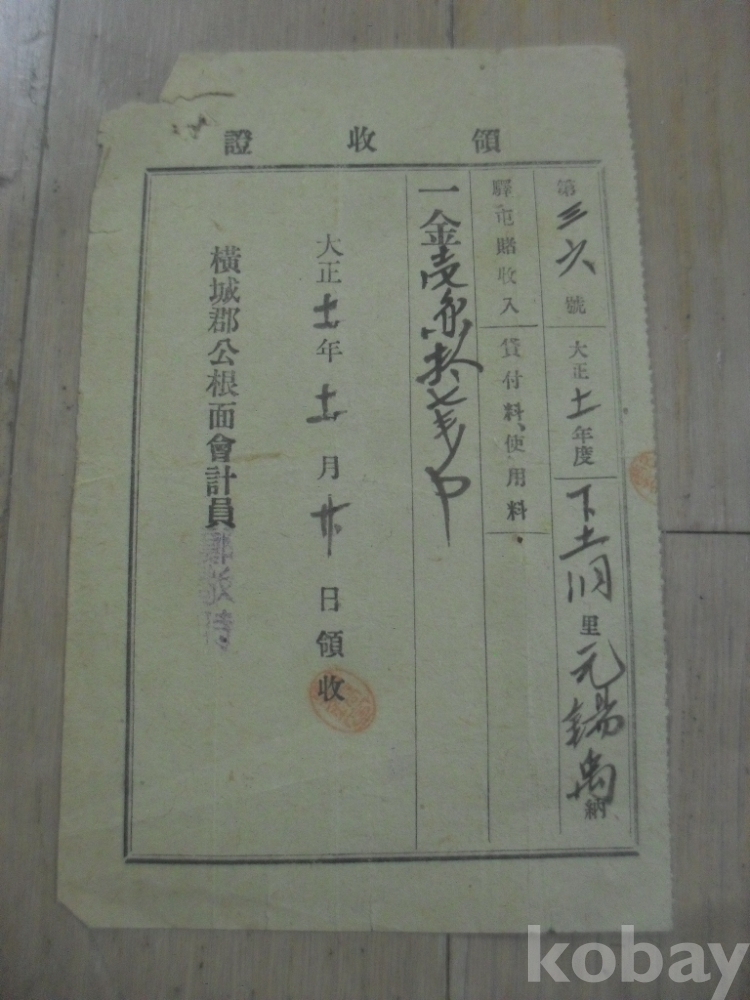 領收證
第三六號 大正十一年度 下土洞里元錫禹納
驛屯賭收入 貸付料、使用料
一金壹
大正十一年十一月廿日領收
橫城郡公根面會計員鄭
kobay